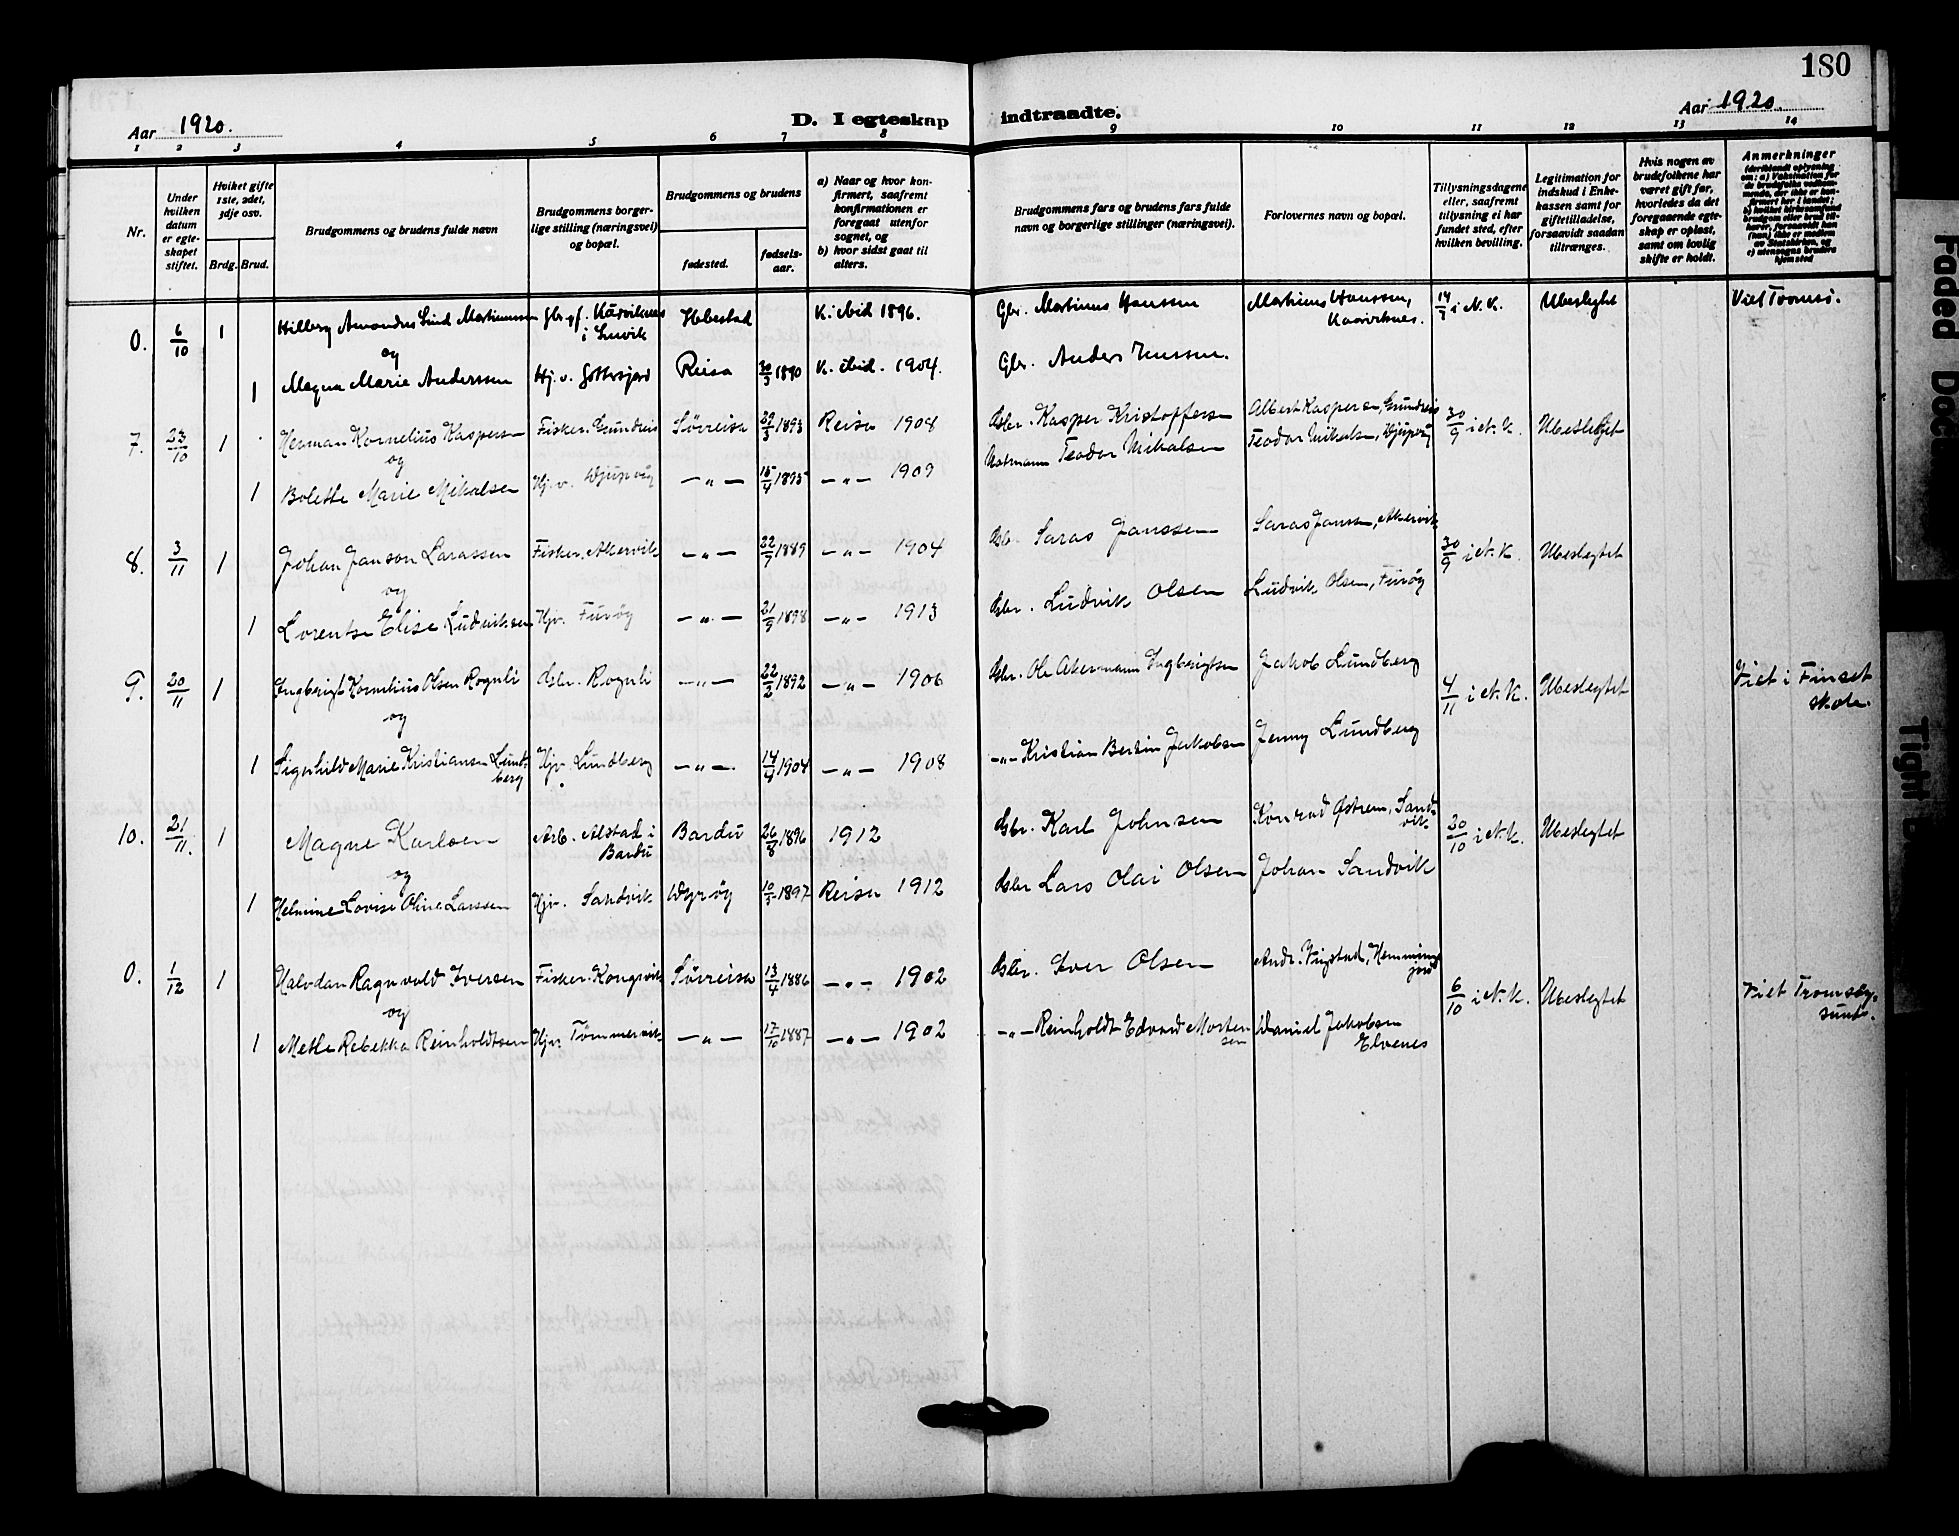 180
Aar 1920.
D. I egteskap indtraadte.
Aar 1920.
1 2 3 4 5 6 7 8 9 10 11 12 13 14
Nr.
Under hvilken datum er egteskapet stiftet.
Hviket gifte 1ste, 2det, 3dje osv.
Brdg. Brud.
Brudgommens og brudens fulde navn
Brudgommens borgerlige stilling (næringsvei) og bopæl.
Brudgommens og brudens
fødested.
fødselsaar.
a) Naar og hvor konfirmert, saafremt konfirmationen er foregaat utenfor sognet, og
b) hvor sidst gaat til alters.
Brudgommens fars og brudens fars fulde navn og borgerlige stillinger (næringsvei).
Forlovernes navn og bopæl.
Tillysningsdagene eller, saafremt tillysning ei har fundet sted, efter hvilken bevilling.
Legitimation for indskud i Enkekassen samt for giftetilladelse, forsaavidt saadan tiltrænges.
Hvis nogen av brudefolkene har været gift før, hvorledes da det foregaaende egteskap er opløst, samt om lovlig skifte er holdt.
Anmerkninger
0. 6/10 1 Hilberg Amandus Lind Martinussen K. ibid 1896. Gbr. Martinus Hanssen Martinus Hanssen, i N. K. Ubeslegtet Viet Tromsø.
og
1 Magna Marie Anderssen Hj. v. Reisa 1890 K. ibid. 1904. Gbr. Anders Jenssen.
7. 23/10 1 Herman Kornelius Kaspersen Fisker. Grundreis Sørreisa 29/3 1893 Reisa 1908 Gbr. Kasper Kristoffersen Albert Kaspersen, Grundreis 30/9 i N. K. Ubeslegtet
og
1 Bolette Marie Mikalsen Hj. v. Djupvåg —"— 15/4 1895 —"— 1909 Teodor Mikalsen Teodor Mikalsen, Djupvåg
8. 3/11 1 Johan Janson Larassen Fisker. Akervik —"— 22/7 1889 —"— 1904 Gbr. Saras Janssen Saras Janssen, Akervik 30/9 i N. K. Ubeslegtet
og
1 Lorentse Elise Ludviksen Hjv. Furøy —"— 21/9 1898 —"— 1913 Gbr. Ludvik Olsen Ludvik Olsen, Furøy
9. 20/11 1 Ingbrigt Kornelius Olsen Rognli Gbr. Rognli —"— 22/2 1892 —"— 1906 Gbr. Ole Akermann Ingbrigtsen Jakob Lundberg 4/11 i N. K. Ubeslegtet Viet i Finset skole.
og
1 Sigrhild Marie Kristiansen Lundberg Hjv. Lundberg —"— 14/4 1904 —"— 1908 —"— Kristian Bertin Jakobsen Jenny Lundberg
10. 21/11. 1 Magne Karlsen Arb. Alstad i Bardu Bardu 26/8 1896 1912 Gbr. Karl Johnsen Konrad Østrem, Sandvik 30/10 i N. K. Ubeslegtet
og
1 Helmine Lovise Oline Larssen Hjv. Sandvik Dyrøy 10/3 1897 Reisa 1912 Gbr Lars Olai Olsen Johan Sandvik
0. 1/12 1 Halvdan Ragnvald Iversen Fisker. Kongsvik Sørreisa 13/4 1886 —"— 1902 Gbr. Iver Olsen Andr. Vigstad, Hemmingsjord 6/10 i N. K. Ubeslegtet Viet Tromsøysund.
og
1 Mette Rebekka Reinholdtsen Hjv. Tømmervik —"— 17/10 1887 —"— 1902 —"— Reinholdt Edvard Mortensen Daniel Jakobsen Elvenes
Faded Doc
Tight B